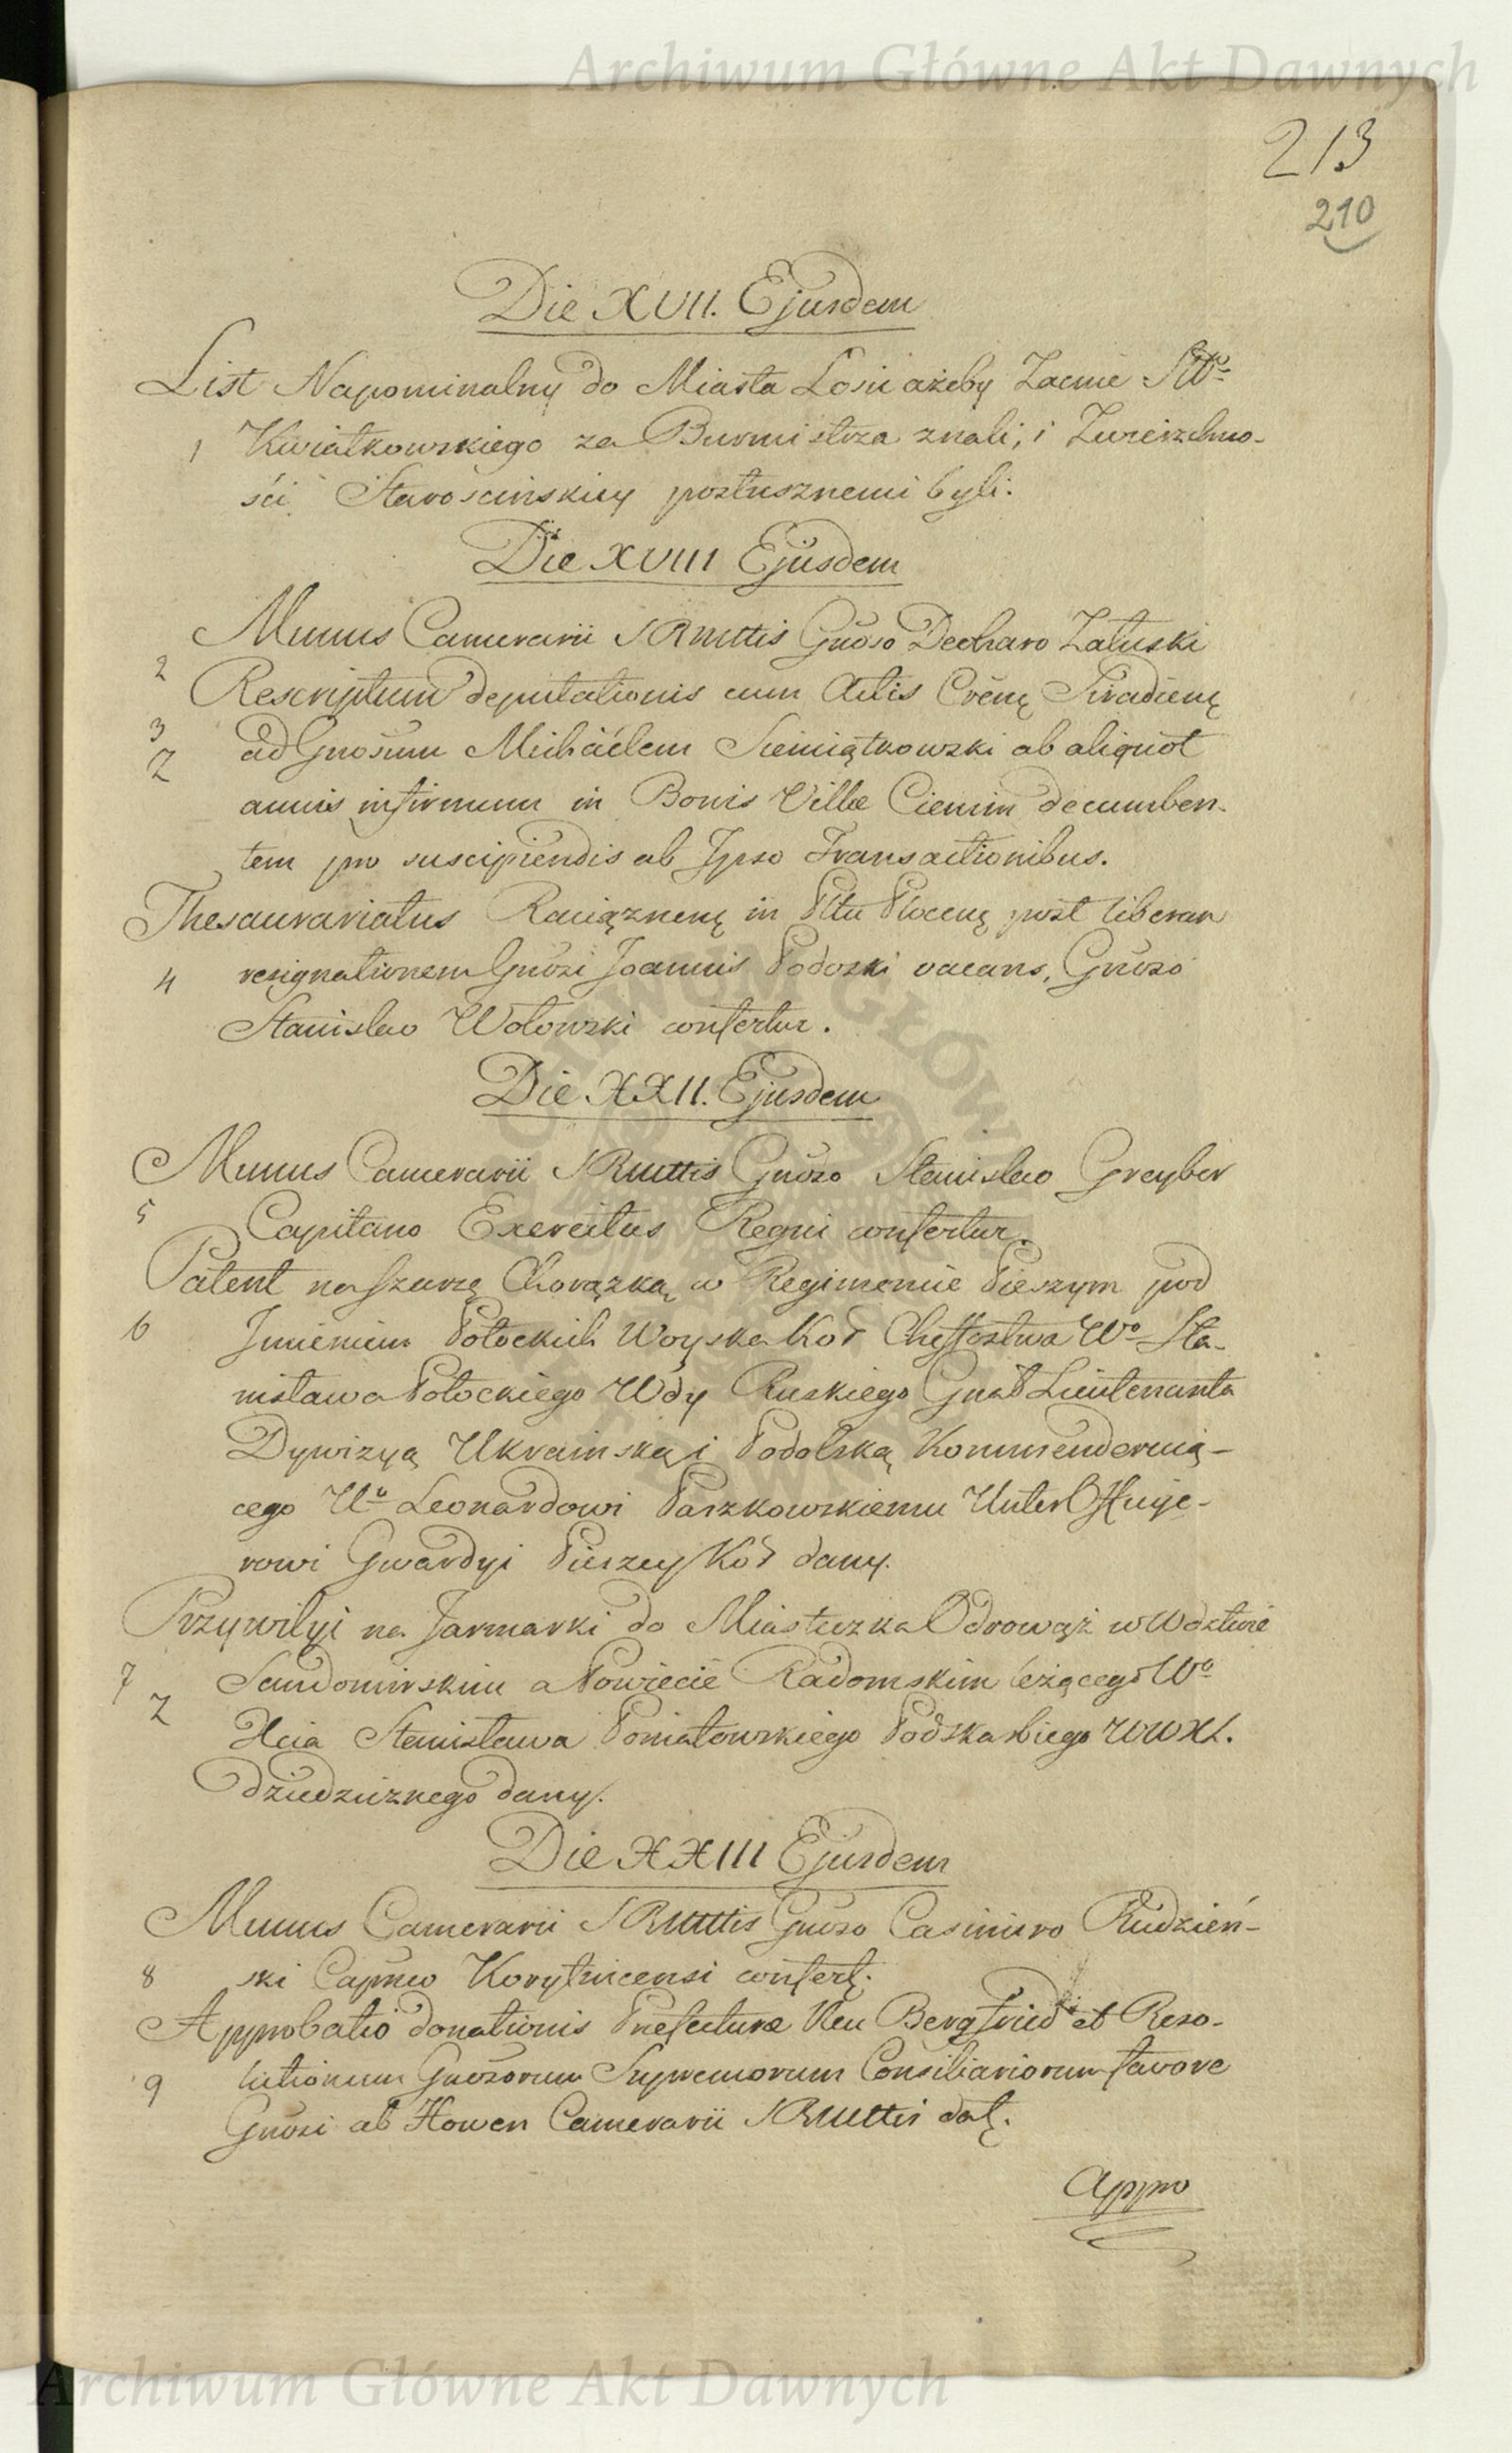 Archiwum Główne Akt Dawnych
213
210
Die XVII. Ejusdem
List Napominalny do Miasta Łosic ażeby Zacnie
1 Kwiatkowskiego za Burmistrza znali, i Zwierzchno-
ści Starościńskiey posłusznemi byli.
Die XVIII Ejusdem
Munus Camerarii SRMttis Gnoso Załuski
2
Rescriptum deputationis cum Actis Crēnę Siradienę
3 ad Gnosum Michäelem Siemiątkowski ab aliquot
Z
annis infirmum in Bonis Villæ Ciemin decumben-
tem pro suscipiendis ab Ipso Transactionibus.
Thesaurariatus Raciąznenę in Pttu Plocenę post liberam
4 resignationem Gnosi Joannis Podoski vacans, Gnoso
Stanislao Wołowski confertur.
Die XXII. Ejusdem
Munus Camerarii SRMttis Gnoso Stanislao Greyber
5 Capitano Exercitus Regni confertur.
Patent na Szarżę Chorążką w Regimencie Pieszym pod
6 Imieniem Potockich Woyska Kor Cheffostwa Wo Sta-
nisława Potockiego Wdy Ruskiego Gnał Lieutenanta
Dywizyą Ukrainską i Podolską Kommenderuią-
cego Uo Leonardowi Paszkowskiemu Unter Offycye-
rowi Gwardyi Pieszey Kor dany.
Przywiley na Jarmarki do Miasteczka Odrowąż w Wdztwie
7 Sandomirskim a Powiecie Radomskim leżącego Wo
Z
Xcia Stanisława Poniatowskiego Podskarbiego WWXL.
dziedzicznego dany.
Die XXIII Ejusdem
Munus Camerarii SRMttis Gnoso Casimiro Rudzień-
8 ski Capneo Korytnicensi confertę.
Approbatio donationis Præfecturæ Neu Bergfried et Reso-
9 lutionum Gnosorum Supremorum Consiliariorum favore
Gnosi ab Howen Camerarii SRMttis datę.
Appro
Archiwum Główne Akt Dawnych